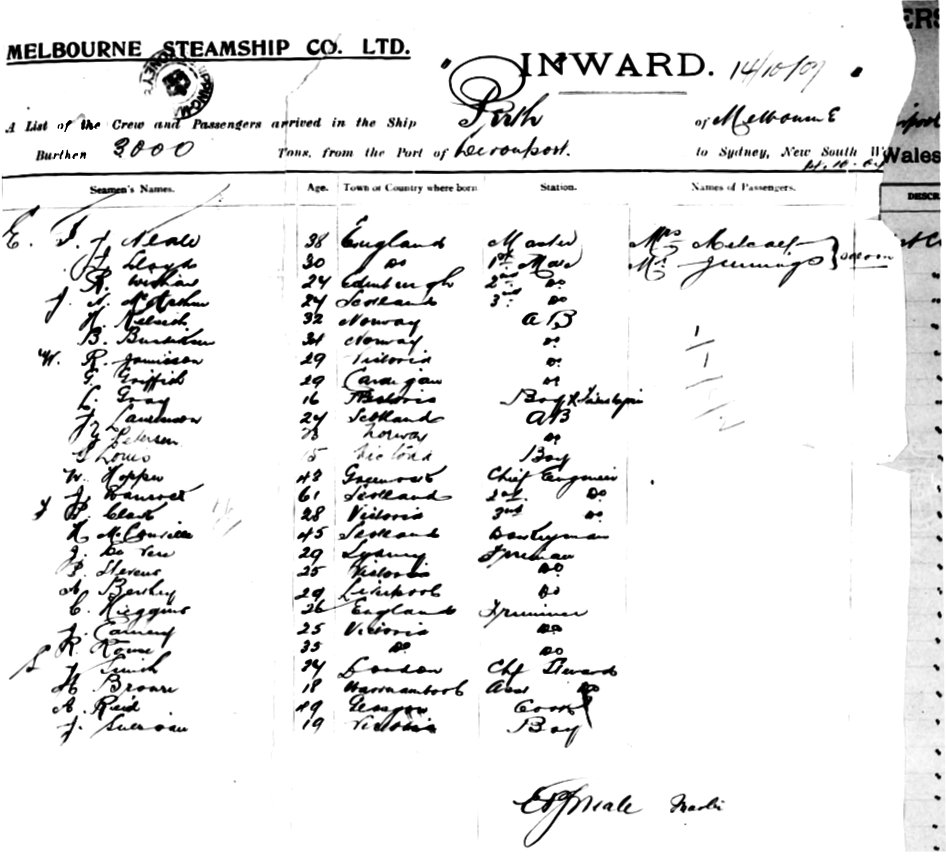 MELBOURNE STEAMSHIP CO. LTD.
INWARD. 14/10/07
A List of the Crew and Passengers arrived in the Ship Perth of Melbourne
Burthen 3000 Tons, from the Port of Devonport. to Sydney, New South Wales
14.10.07
Seamen's Names. Age. Town or Country where born Station. Names of Passengers.
DESCR
E. F. Neale 38 England Master Mrs Metcalf
Lloyd 30 Do 1st Mate Mr Jennings Saloon
R. 24 Edinburgh 2nd Do
J. N. McArthur 24 Scotland 3rd Do
H. 32 Norway AB
B. 31 Norway Do
W. R. Jamieson 29 Victoria Do
G. Griffith 29 Cardigan Do
L. Gray 16 Victoria Boy
24 Scotland AB
Petersen Norway Do
Louis 15 Victoria Boy
W. Hopper 48 Greenock Chief Engineer
J. 61 Scotland 2nd Do
Clark 28 Victoria 3rd Do
H. McConville 45 Scotland Donkeyman
J. De Vere 29 Sydney Fireman
Stevens 25 Victoria Do
A. 29 Liverpool Do
C. Higgins 26 England Trimmer
J. 25 Victoria Do
R. Rouse 35 Do Do
S. J. Smith 24 London Chf Steward
H. Brown 18 Warrnambool Asst Do
A. Reid 49 Glasgow Cook
J. Sullivan 19 Victoria Boy
E F Neale Master